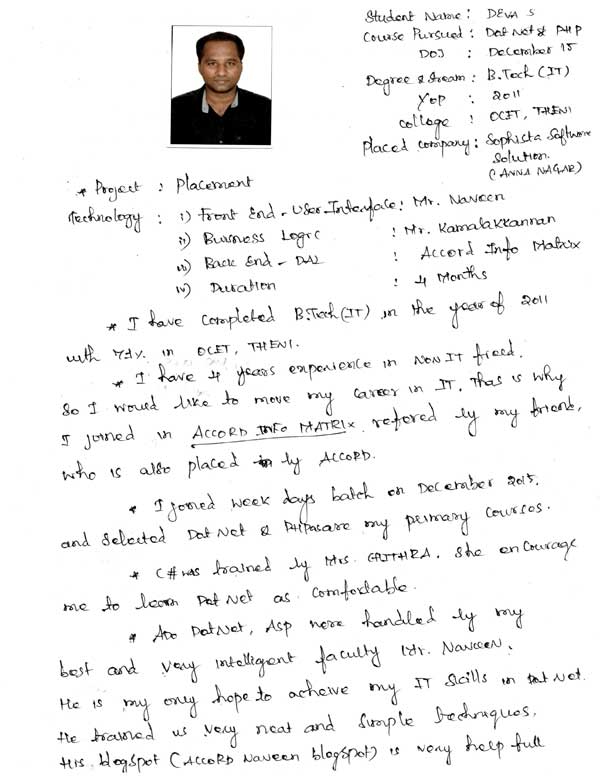 Student Name : DEVA S
Course Pursued : Dot Net & PHP
DOJ : December 15
Degree & Stream : B.Tech (IT)
YOP : 2011
College : OCET, THENI
Placed Company : Sophista Software
Solution.
(ANNA NAGAR)
* Project : Placement
Technology : i) Front End - User Interface : Mr. Naveen
ii) Business Logic : Mr. Kamalakkannan
iii) Back End - DAL : Accord Info Matrix
iv) Duration : 4 Months
* I have completed B.Tech (IT) in the year of 2011
with 71% in OCET, THENI.
* I have 4 years experience in NON IT fieed.
So I would like to move my career in IT, That is why
I joined in ACCORD INFO MATRIX refered by my friend,
who is also placed by ACCORD.
* I joined week days batch on December 2015.
and selected Dot Net & PHP as my primary courses.
* C# was trained by Mrs. GAITHRA. She encourage
me to learn Dot Net as comfortable.
* ADO DotNet, ASP were handled by my
best and very intelligent faculty Mr. Naveen.
He is my only hope to acheive my IT Skills in Dot Net.
He trained us very neat and simple techniques.
His blogspot (ACCORD Naveen blogspot) is very help full